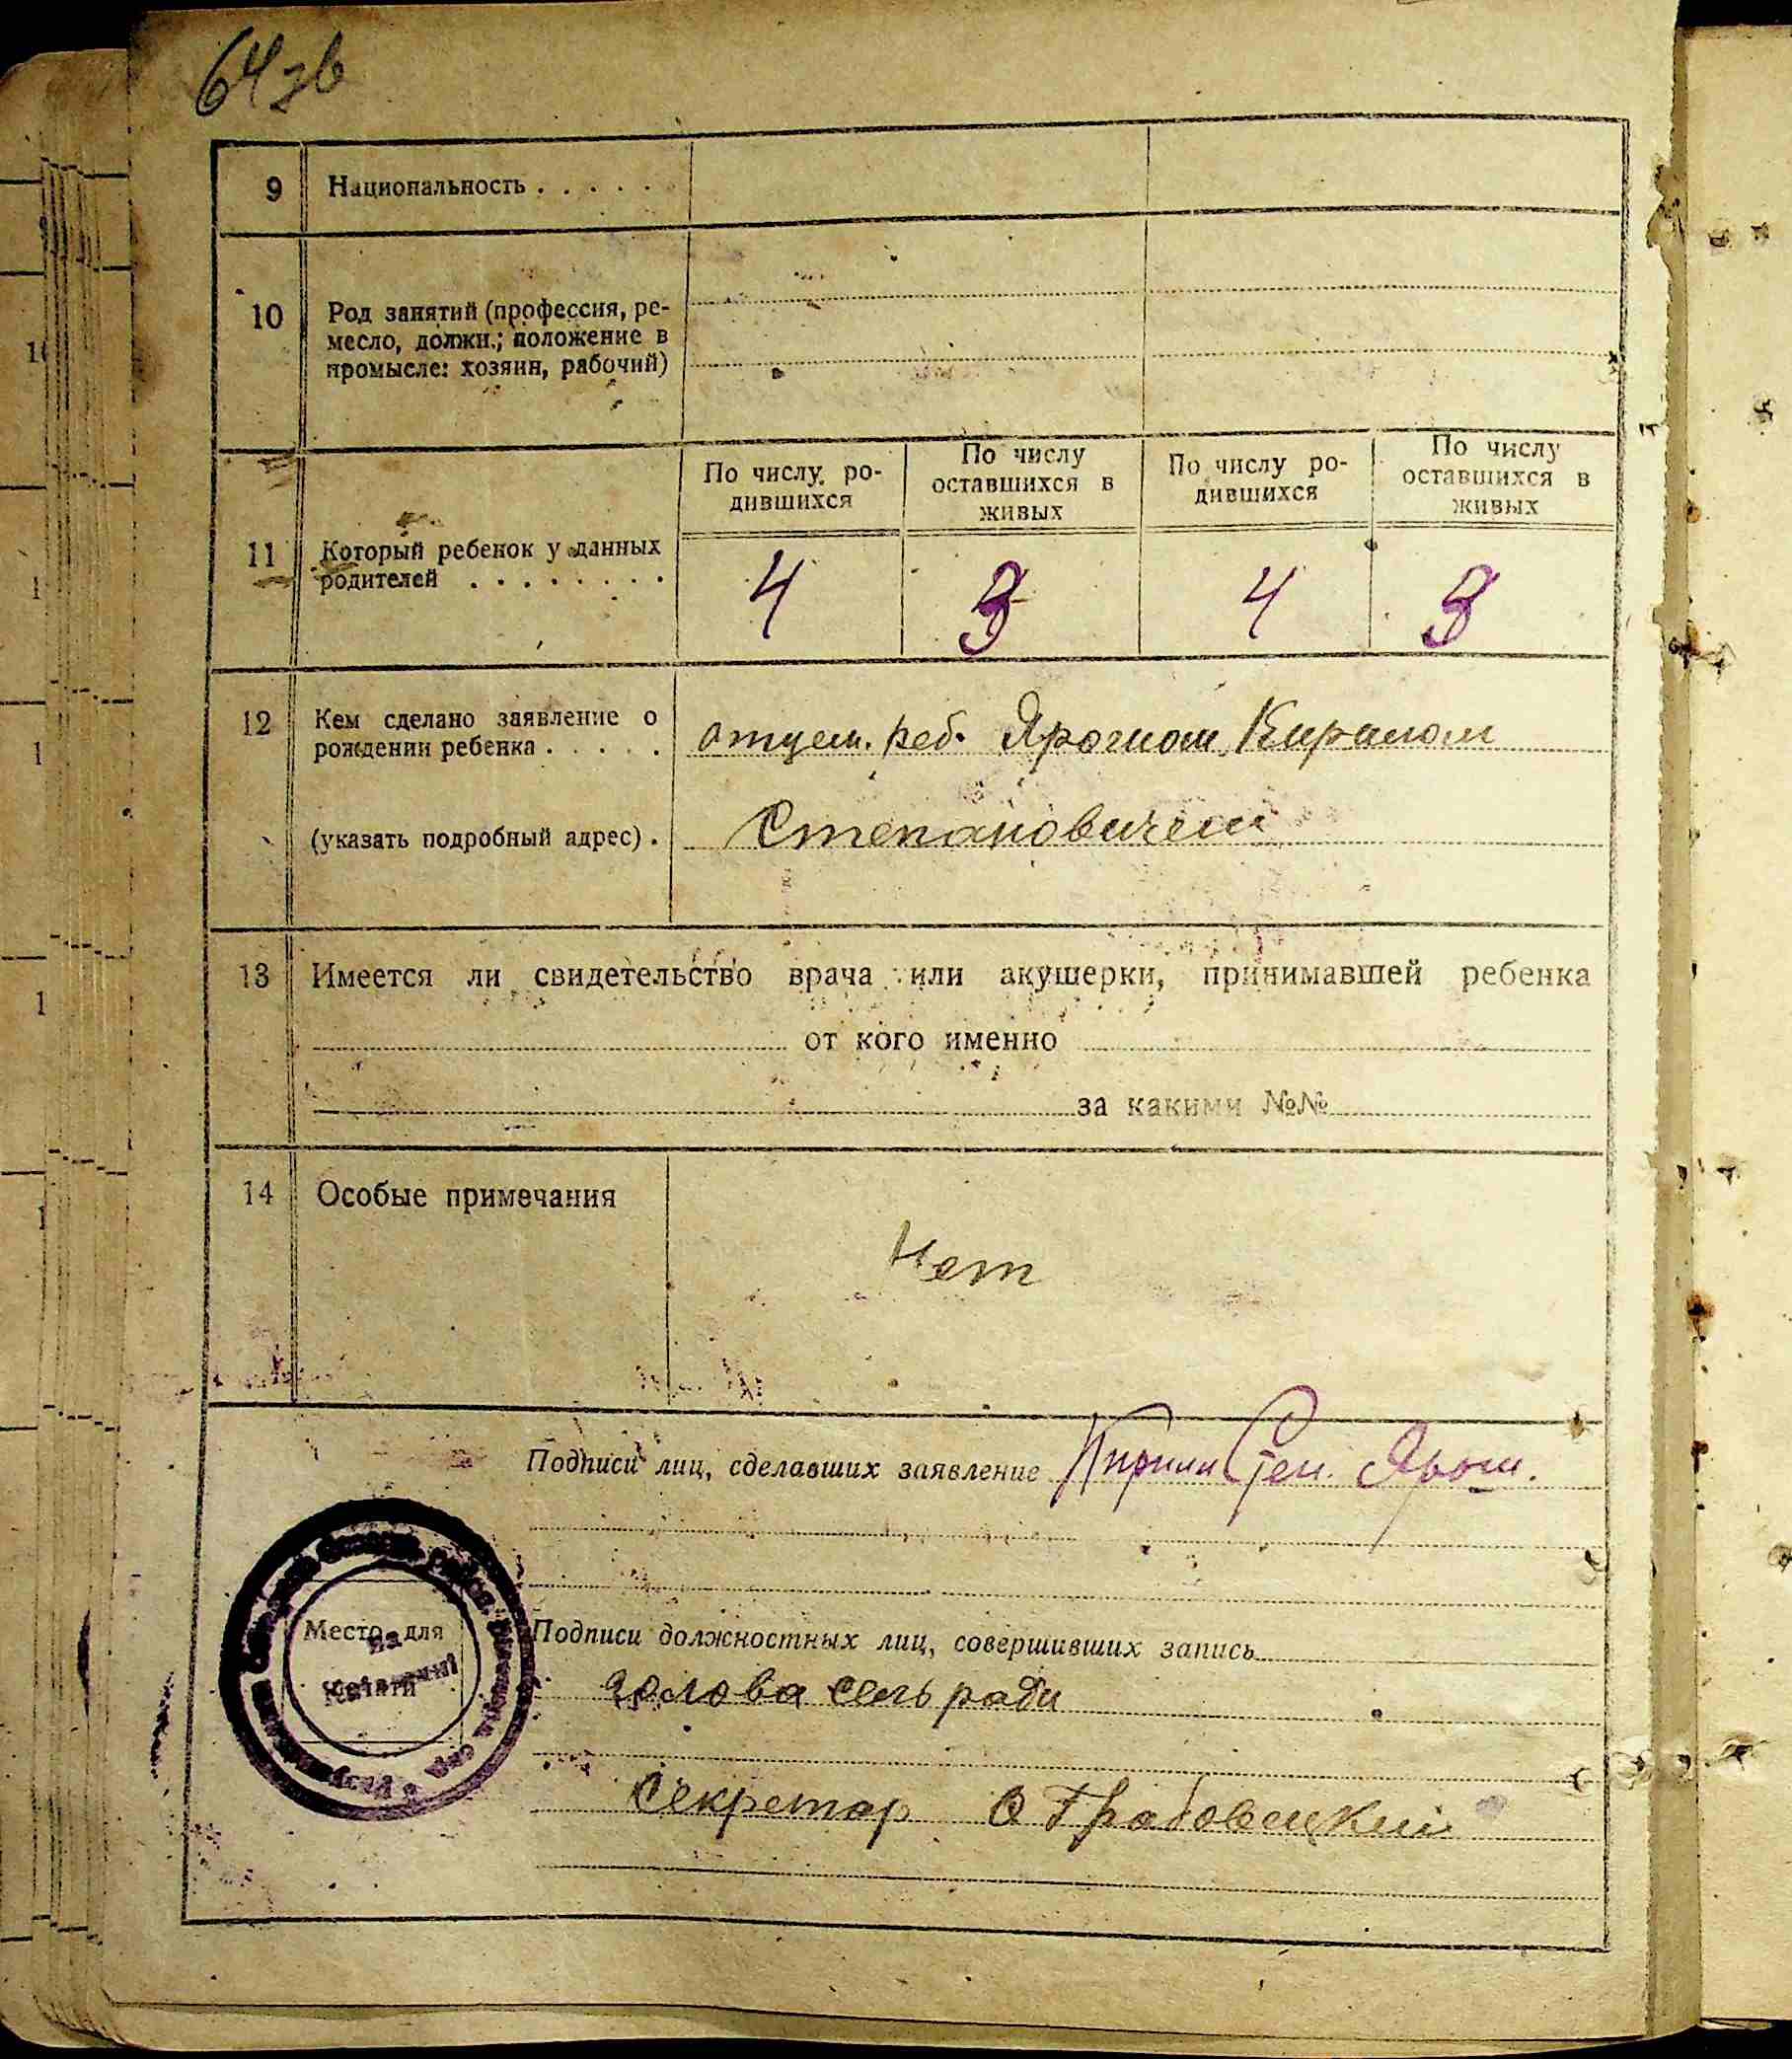 64 зв
9 Национальность . . . . .
10 Род занятий (профессия, ре-
месло, должн.; положение в
промысле: хозяин, рабочий)
По числу ро-
дившихся
По числу
оставшихся в
живых
По числу ро-
дившихся
По числу
оставшихся в
живых
11 Который ребенок у данных
родителей . . . . . . . .
4 3 4 3
12 Кем сделано заявление о
рождении ребенка . . . . .
отцем. реб.
(указать подробный адрес) .
Степановичем
13 Имеется ли свидетельство врача или акушерки, принимавшей ребенка
от кого именно
за какими №№
14 Особые примечания
Нет
Подписи лиц, сделавших заявление
Место для
печати
Подписи должностных лиц, совершивших запись
голова сельради
Секретар О Грабовецкий